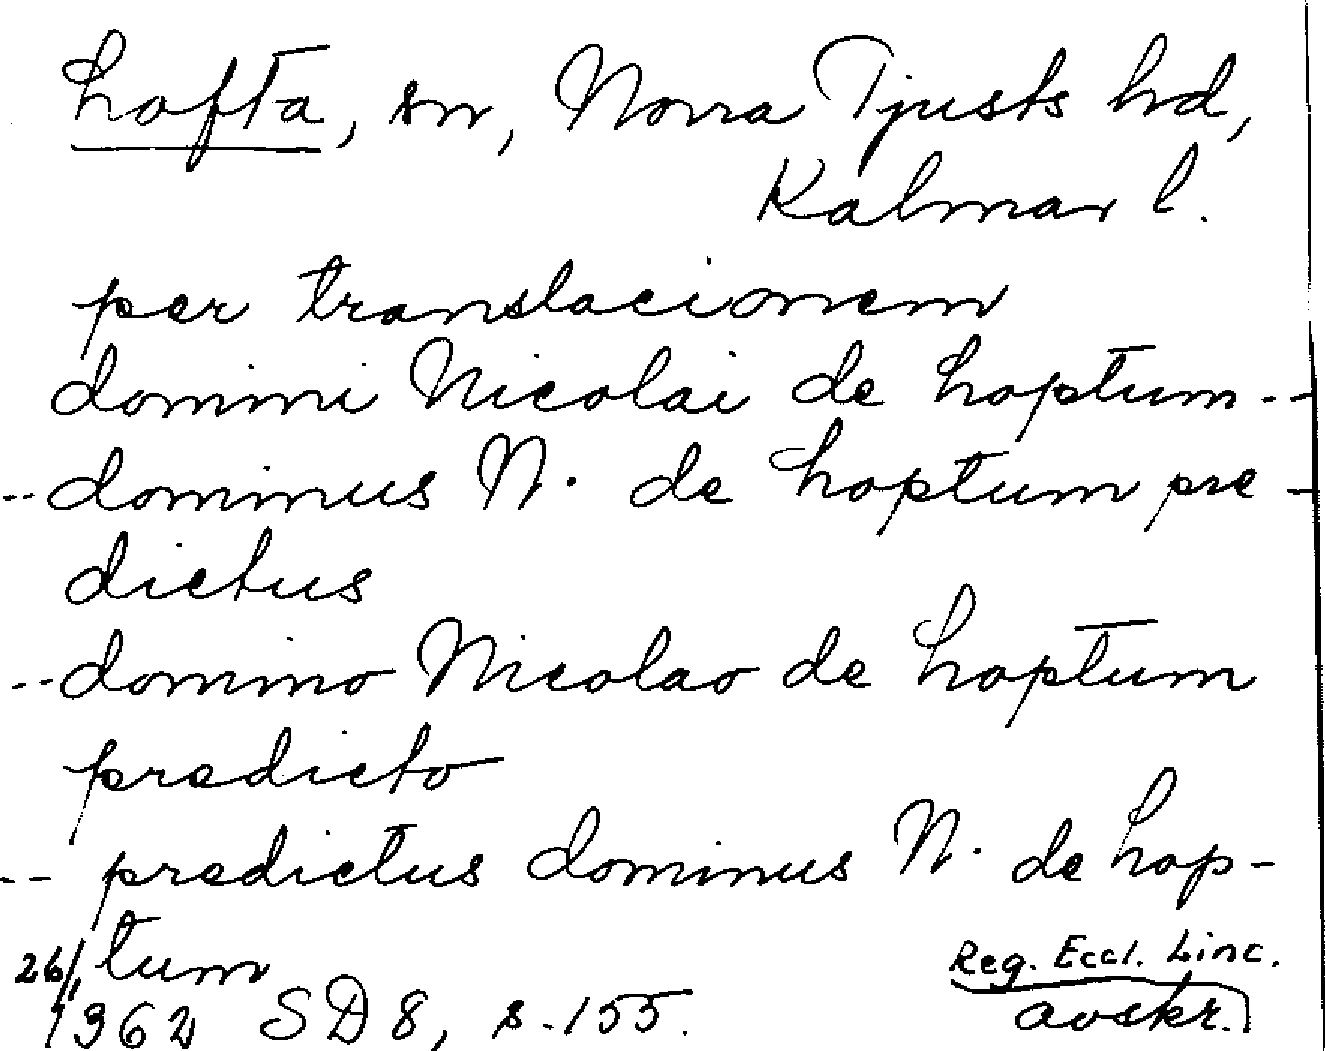 Lofta, sn, Norra Tjusts hd,
Kalmar l.
per translacionem
domini Nicolai de Loptum--
--dominus N. de Loptum pre-
dictus
--domino Nicolao de Loptum
predicto
-- predictus dominus N. de Lop-
tum
26/1 1362 SD 8, s. 155.
Reg. Eccl. Linc.
avskr.